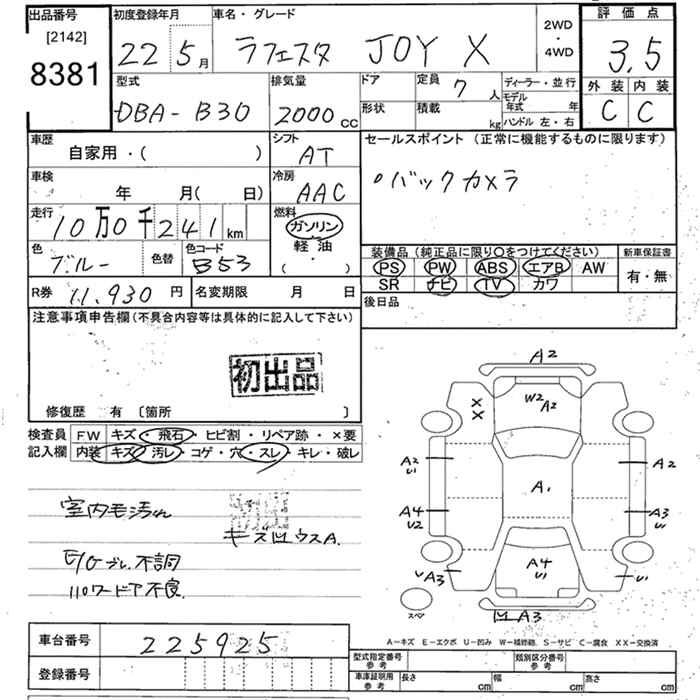 出品番号 初度登録年月 車名・グレード 2WD・4WD 評価点
[2142]
8381 22 5月 ラフェスタ JOY X 3.5
型式 排気量 ドア 定員 7人 ディーラー・並行 外装 内装
DBA-B30 2000cc 形状 積載 kg モデル年式 年 C C
ハンドル 左・右
車歴 シフト セールスポイント (正常に機能するものに限ります)
自家用・( ) AT
車検 冷房 ○バックカメラ
年 月( 日) AAC
走行 燃料
10万0千241km ガソリン
色 色替 色コード 軽油・( ) 装備品(純正品に限り○をつけてください) 新車保証書
ブルー B53 PS PW ABS エアB AW 有・無
SR ナビ TV カワ
R券 11,930円 名変期限 月 日 後日品
注意事項申告欄(不具合内容等は具体的に記入して下さい)
初出品
修復歴 有 〔箇所 〕
検査員 FW キズ・飛石・ヒビ割・リペア跡・×要
記入欄 内装 キズ・汚レ・コゲ・穴・スレ・キレ・破レ
室内毛汚れ
キズ凹ウスA.
E/Gブレ.不調
パワードア不良.
A2
W2 A2
XX
A2 U1
A1
A2
A4 U2
A3 U1
A4 U1
A3
U1
スペア
凹A3
A-キズ E-エクボ U-凹み W-補修跡 S-サビ C-腐食 XX-交換済
車台番号 225925
型式指定番号 参考 類別区分番号 参考
登録番号
車庫証明用 参考 長さ cm 幅 cm 高さ cm